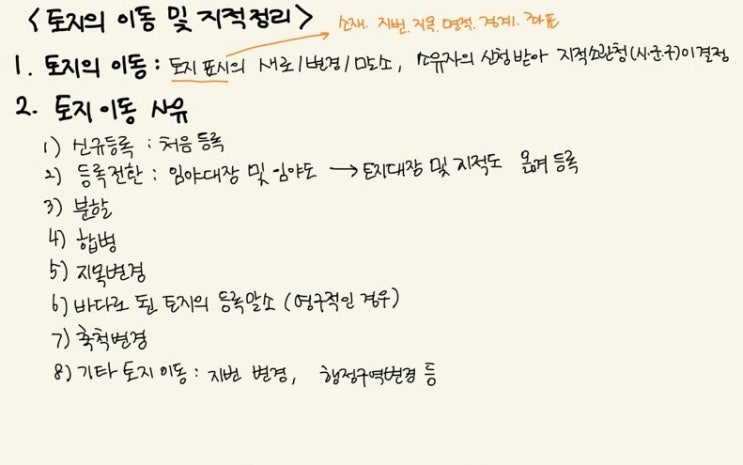 <토지의 이동 및 지적정리>
소재. 지번. 지목. 면적. 경계. 좌표
1. 토지의 이동 : 토지 표시의 새로/변경/말소, 소유자의 신청받아 지적소관청(시·군·구)이 결정
2. 토지 이동 사유
1) 신규등록 : 처음 등록
2) 등록전환 : 임야대장 및 임야도 → 토지대장 및 지적도 옮겨 등록
3) 분할
4) 합병
5) 지목변경
6) 바다로 된 토지의 등록말소 (영구적인 경우)
7) 축척변경
8) 기타 토지이동 : 지번 변경, 행정구역변경 등